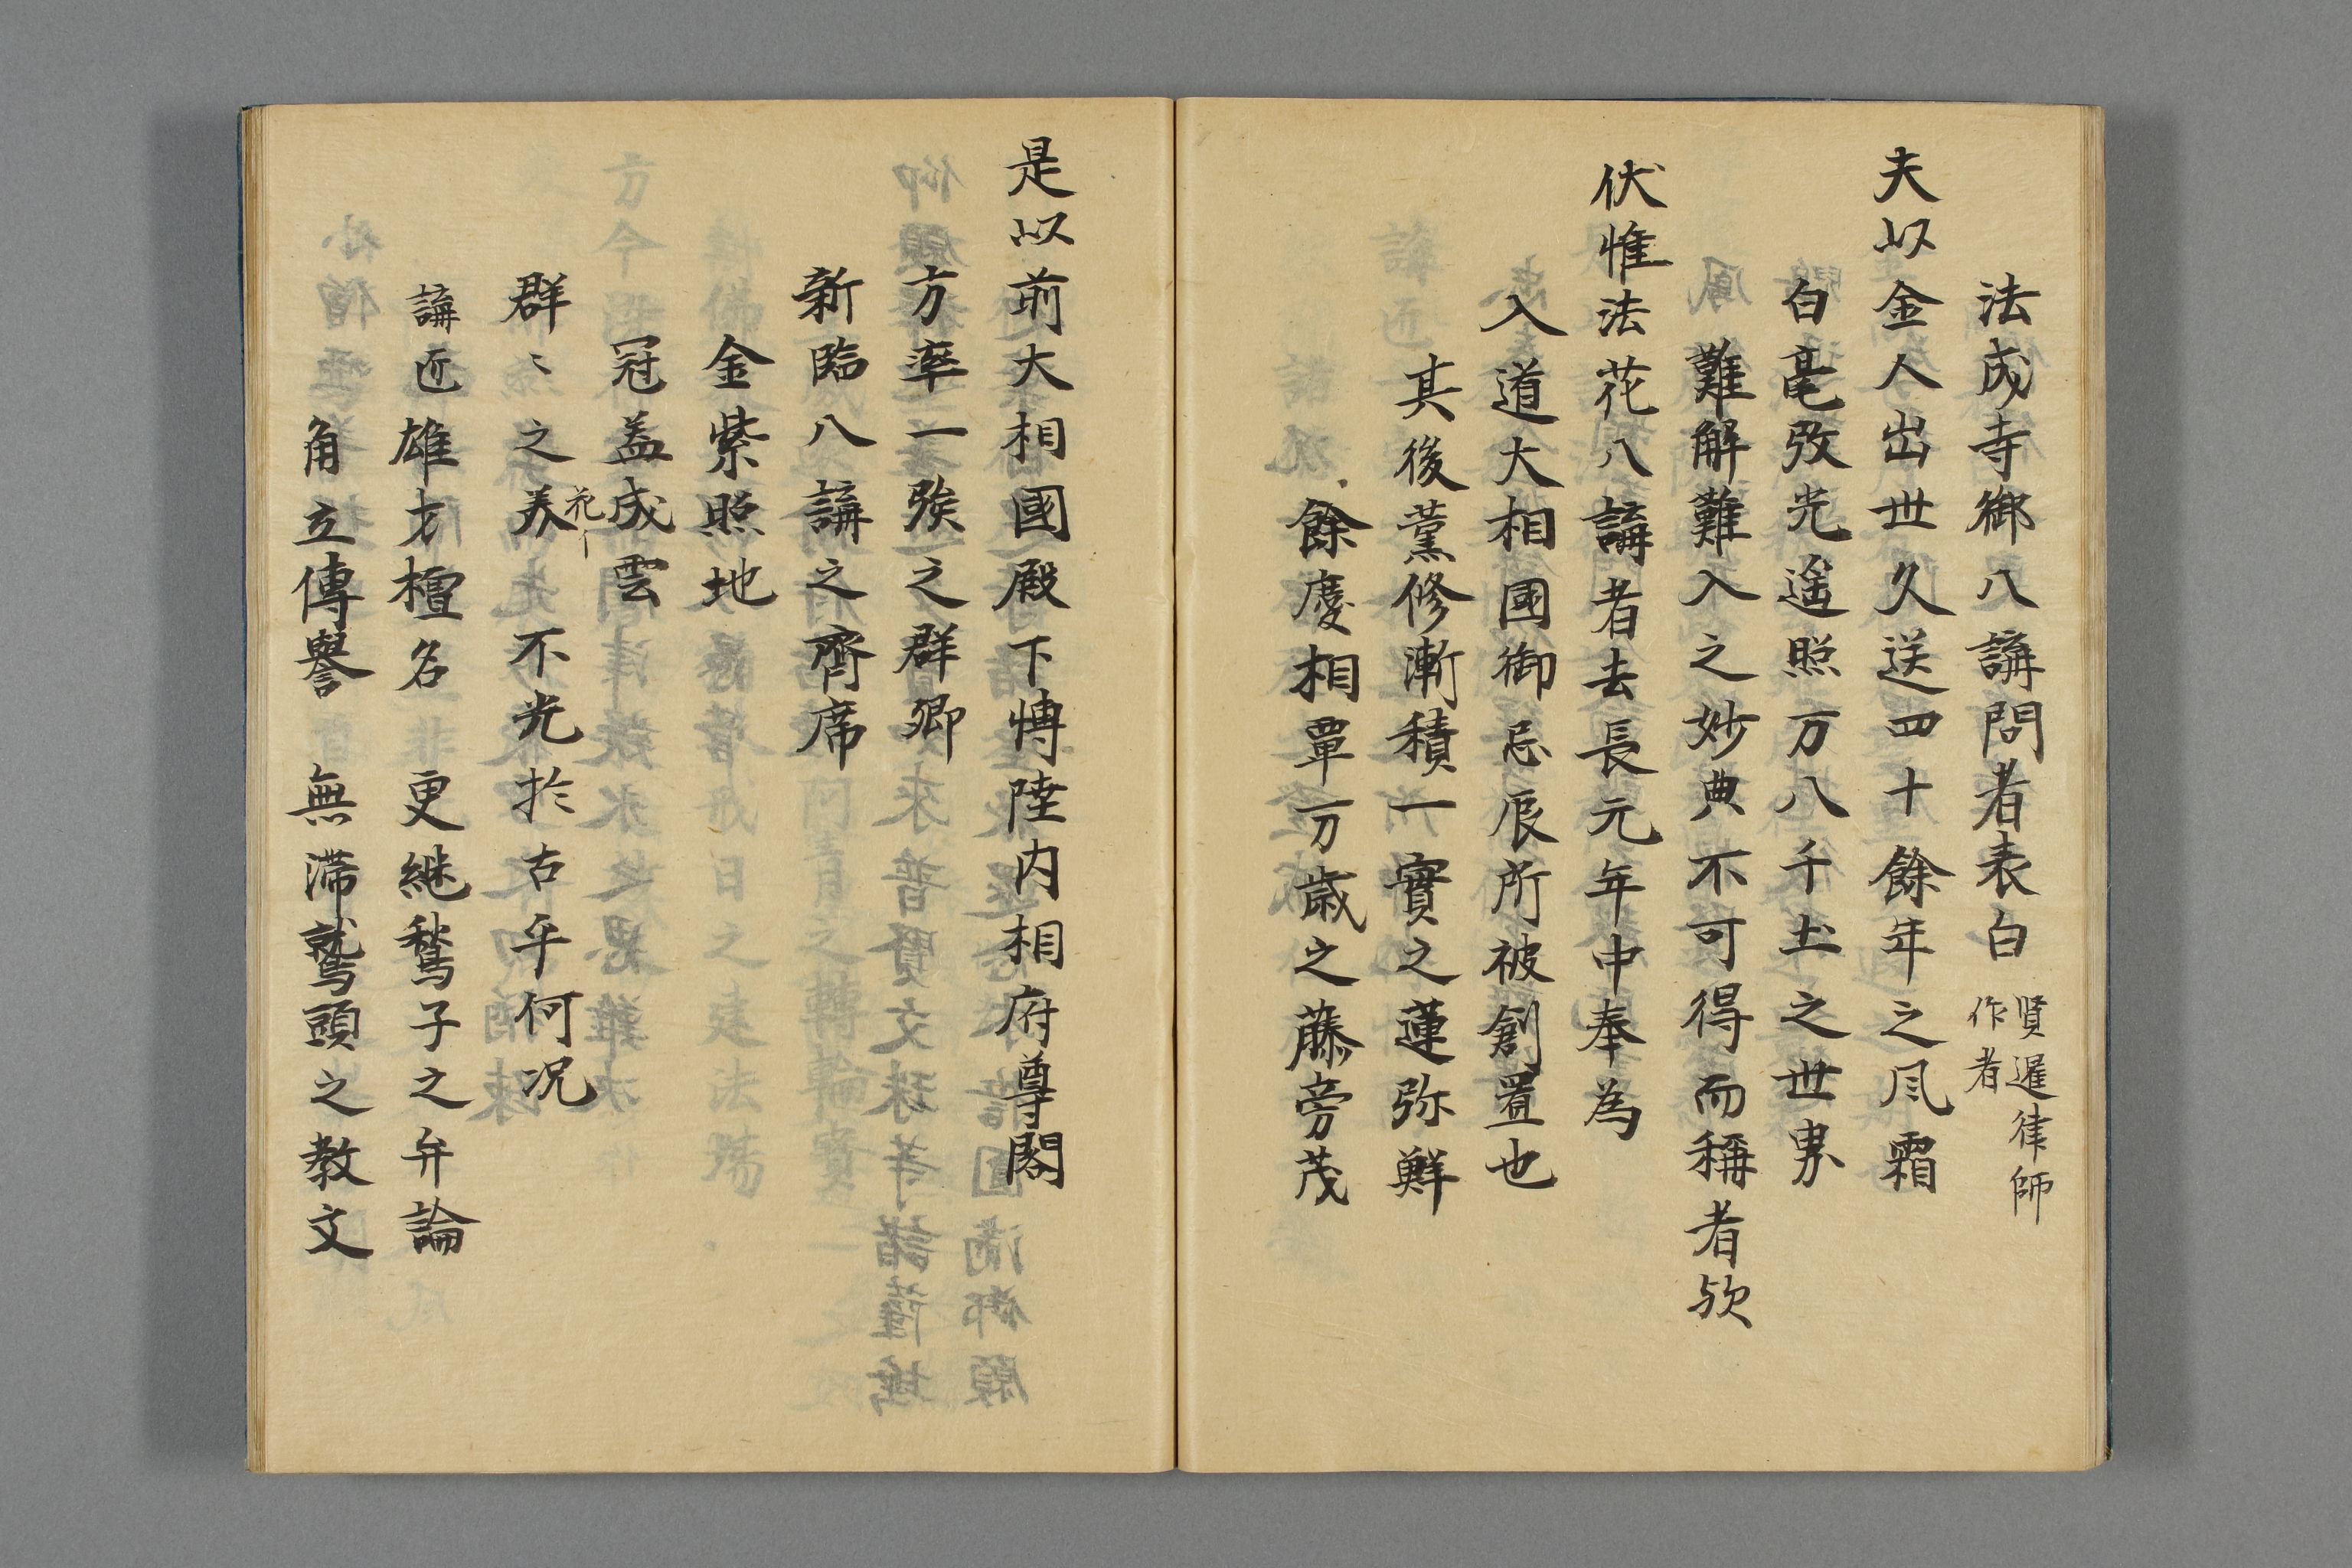 法成寺御八講問者表白 賢暹律師
作者
夫以金人出世久送四十餘年之風霜
白毫放光遥照万八千土之世界
難解難入之妙典不可得而稱者歟
伏惟法花八講者去長元年中奉為
入道大相國御忌辰所被創置也
其後薫修漸積一實之蓮弥鮮
餘慶相覃万歳之藤旁茂
是以前大相國殿下博陸内相府尊閤
方率一族之群卿
新臨八講之齊席
金紫照地
冠盖成雲
群〻之美 不光於古乎何况
花
講匠雄才擅名 更継鶖子之弁論
角立傳譽 無滞鷲頭之教文